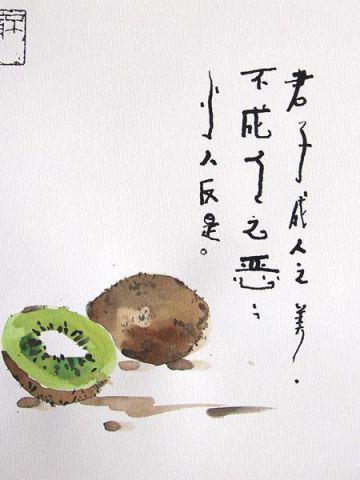 君子成人之美.
不成人之恶;
小人反是。